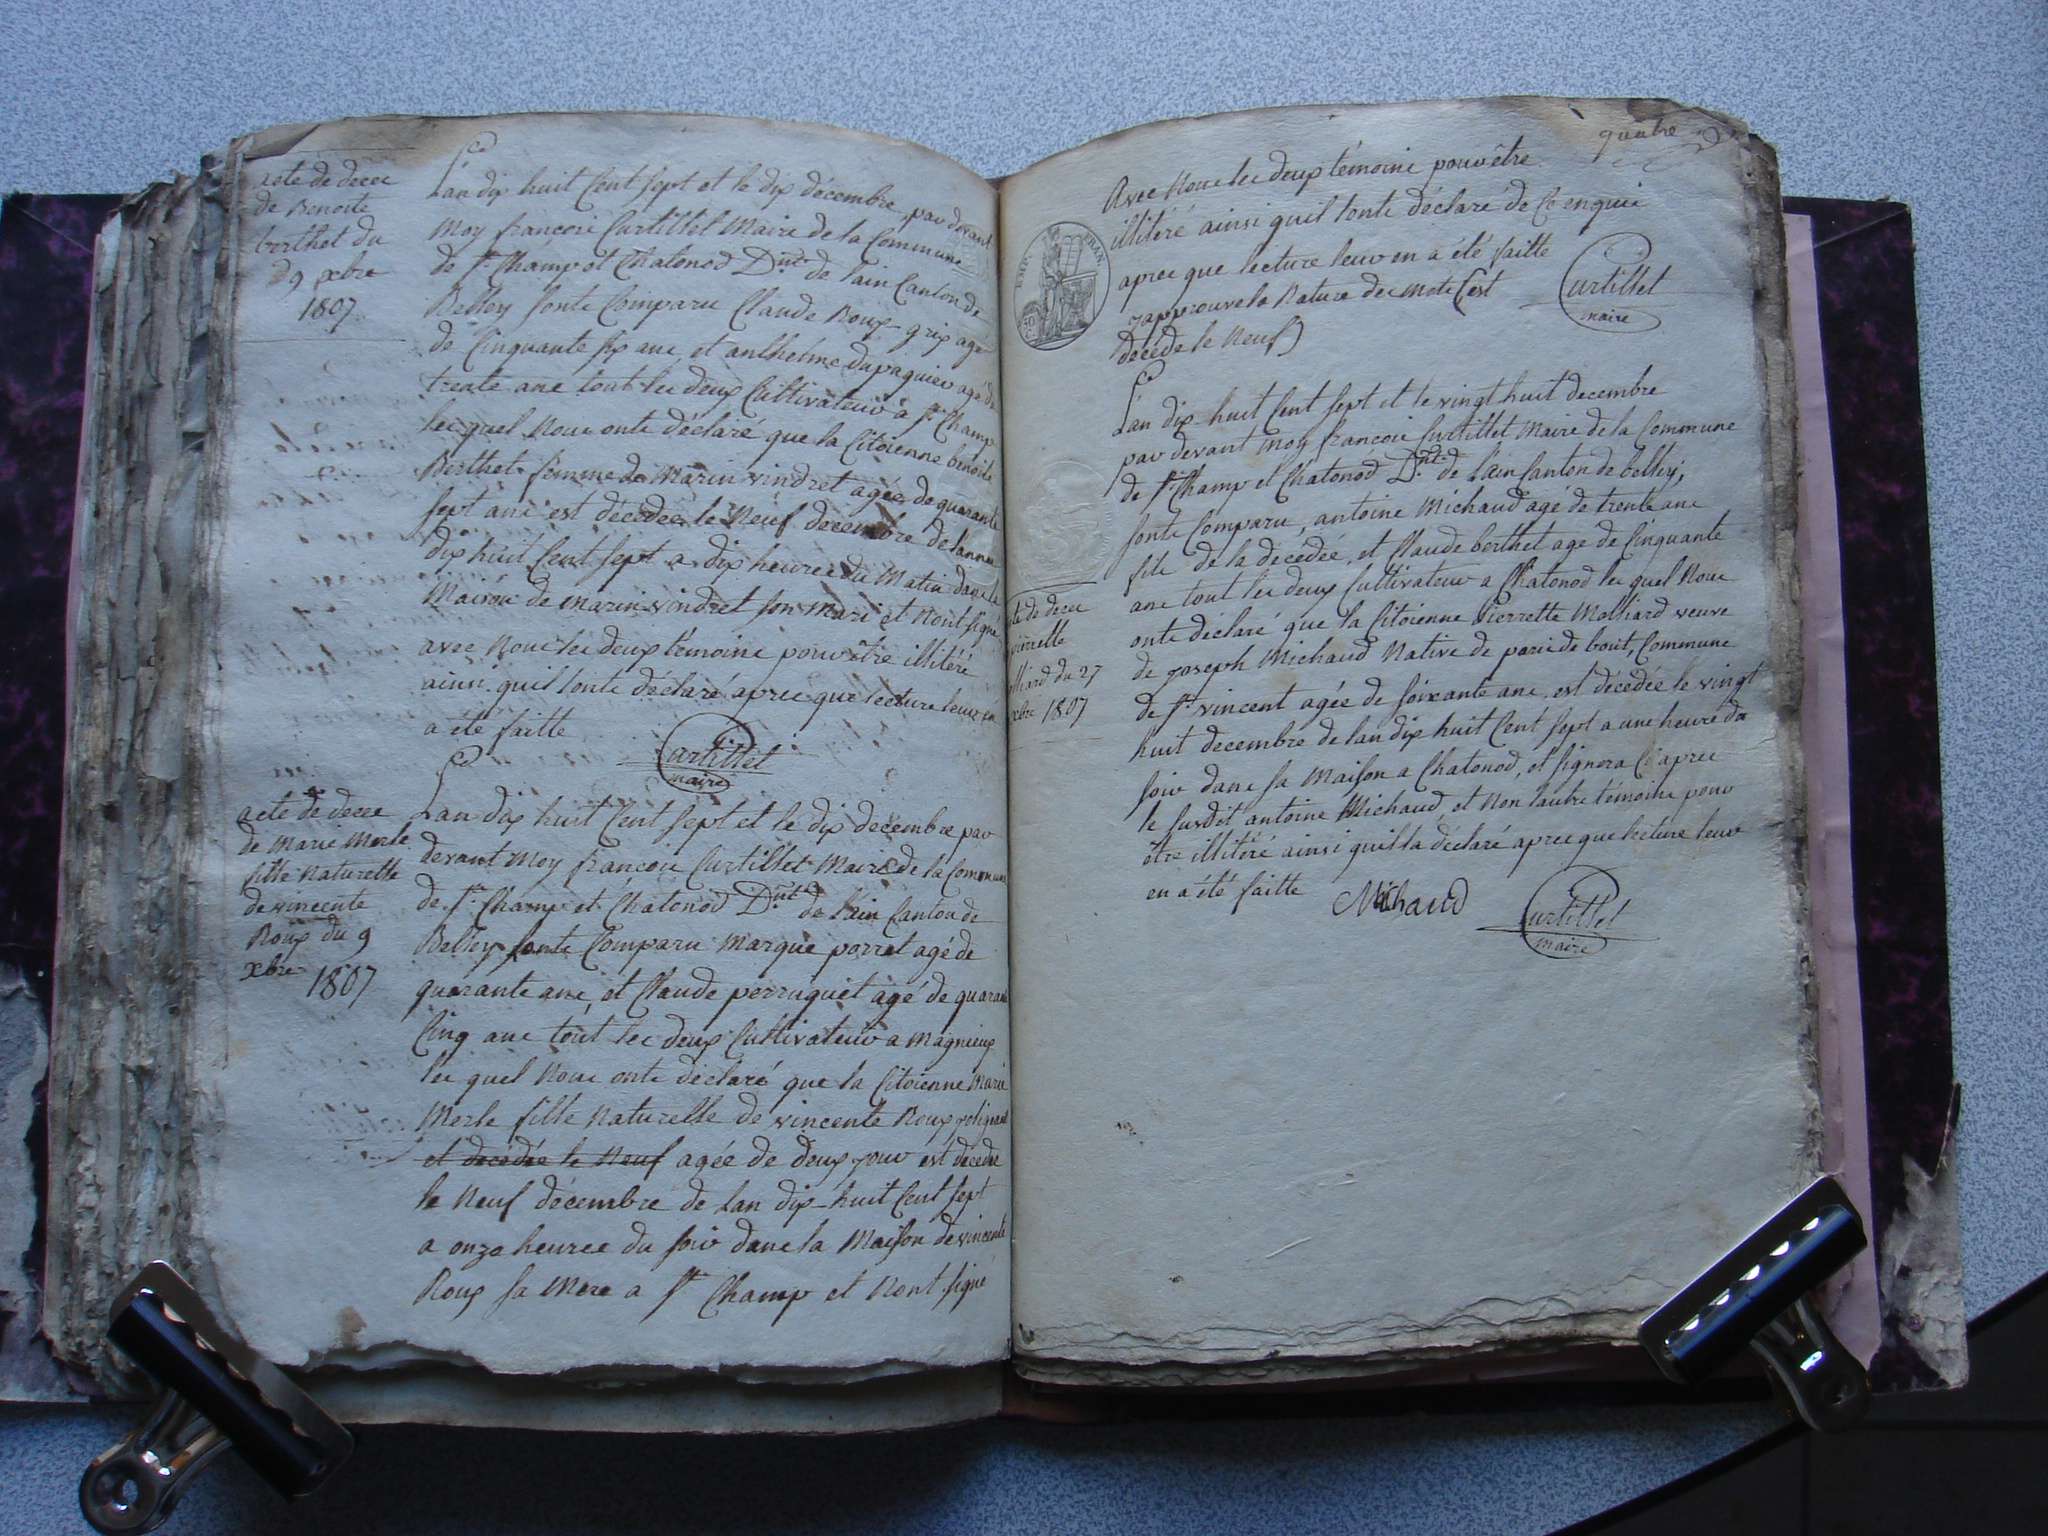 acte de decec
de Benoite
berthet du
d 9 xbre
1807
Lan dix huit Cent sept et le dix décembre, par devant
Moy francois Curtillet Maire de la Commune
de st Champ et Chatonod Dmt de lain Canton de
Belley sonts Comparu Claude Roux-grix agé
de Cinquante six anc, et anthelme dupaquier agé de
trente anc tout lec deux Cultivateur a st Champ
lec quel Nouc onts déclaré que la Citoienne benoite
Berthet femme de Marin vindret agée de quarante
sept anc est décédée le Neuf decembre de lannée
dix huit Cent sept a dix heurec du Matin dans la
Maison de Marin vindret son Mari et Nont signé
avec Nouc lec deux témoinc pour être illitéré
ainsi quil lonts déclaré aprec que lecture leur en
a été faitte
Curtillet
maire
acte de decec
de Marie Merle
fille Naturelle
de vincente
Roux du 9
xbre 1807
Lan dix huit Cent sept et le dix decembre par
devant Moy francoic Curtillet Maire de la Commune
de st Champ et Chatonod Dmt de lain Canton de
Belley sonts Comparu Marque porret agé de
quarante anc, et Claude perruquet agé de quarante
Cinq anc tout lec deux Cultivateur a Magnieux
lec quel Nouc onts déclaré que la Citoienne Marie
Merle fille Naturelle de vincente Roux
et decédée le Neuf agée de deux jour est décédée
le Neuf décembre de lan dix-huit Cent sept
a onze heurec du soir danc la Maison de vincente
Roux sa Mere a st Champ et Nont signé
quatre
Avec Nouc lec deux témoinc pour être
illitéré ainsi quil lonts déclaré de Ce enquic
aprec que lecture leur en a été faitte
japprouve la Rature dec motc (est
décédé le Neuf)
Curtillet
maire
EMP. FRAN.
te de decec
pierrette
olliard du 27
xbre 1807
Lan dix-huit Cent sept et le vingt huit decembre
par devant Moy francoic Curtillet Maire de la Commune
de st Champ et Chatonod Dmt de Lain Canton de belley,
sonts Comparu, antoine Michaud agé de trente anc
filc de la décédée, et Claude berthet age de Cinquante
anc tout lec deux Cultivateur a Chatonod lec quel Nouc
onts déclaré que la Citoienne Pierrette Molliard veuve
de joseph Michaud Native de paric de bout, Commune
de st vincent agée de soixante anc, est décédée le vingt
huit decembre de lan dix huit Cent sept a une heure du
soir danc sa Maison a Chatonod, et signera Ci aprec
le susdit antoine Michaud, et Non lautre témoin pour
être illitéré ainsi quil la déclaré aprec que lecture leur
en a été faitte
Michaud
Curtillet
maire